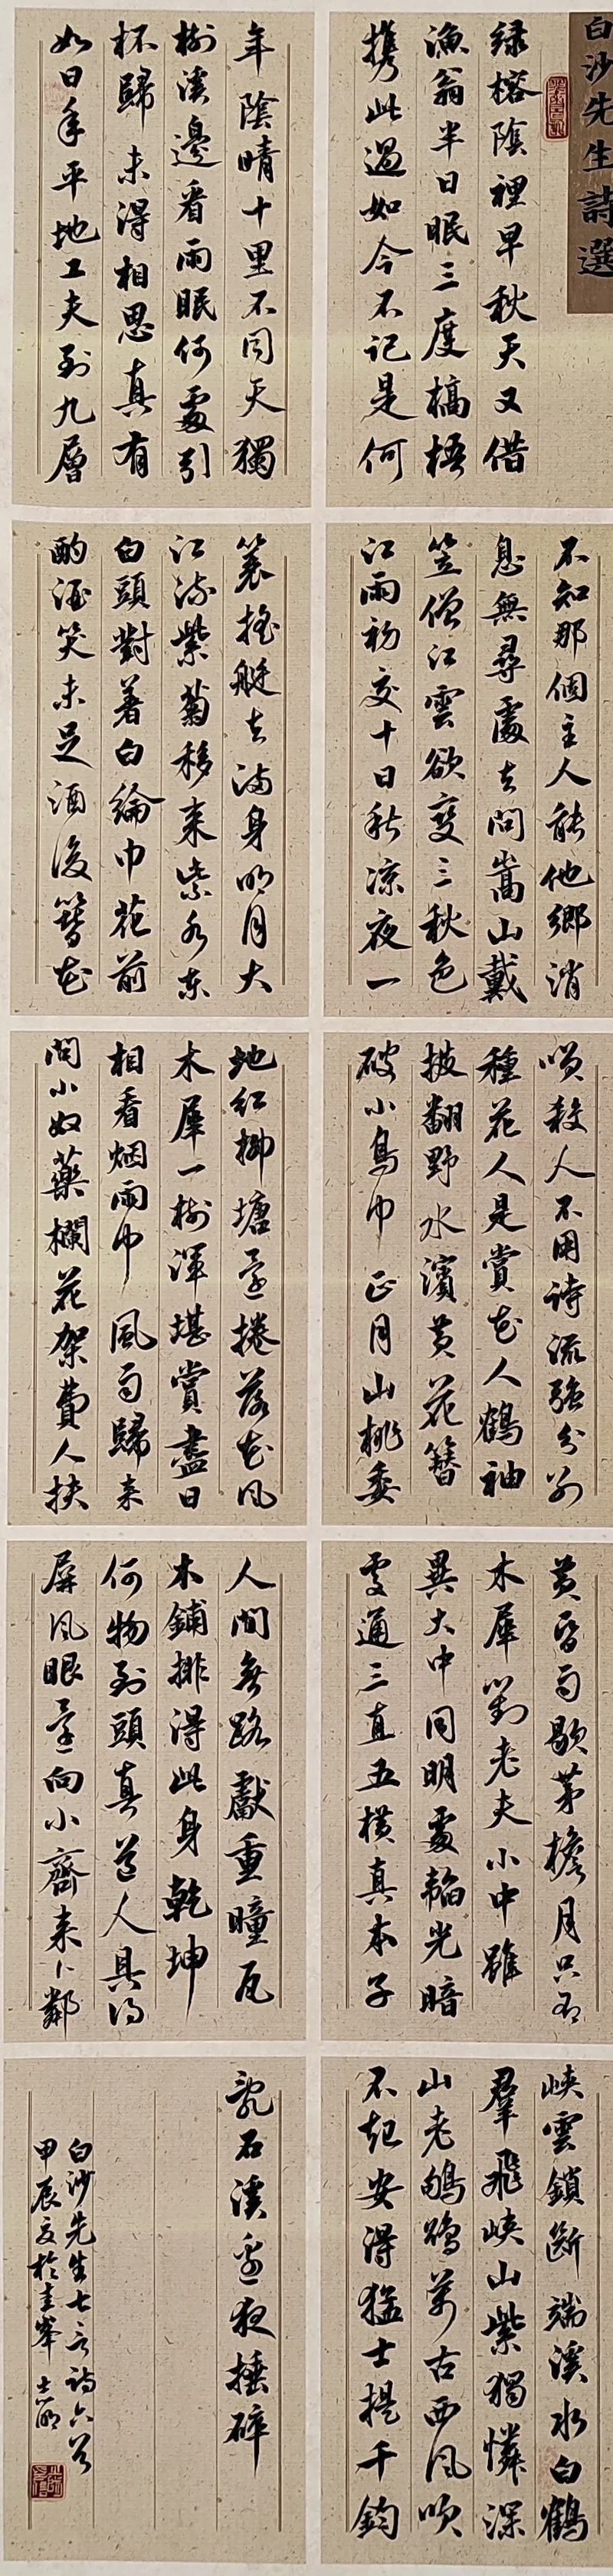 白沙先生詩選
绿榕陰裡早秋天又借
漁翁半日眠三度槁梧
携此過如今不記是何
年陰晴十里不同天獨
樹溪邊看雨眠何處引
杯歸未得相思真有
如日年平地工夫到九層
不知那個主人能他鄉消
息無尋處去問嵩山戴
笠僧江雲欲變三秋色
江雨初交十日秋凉夜一
蓑搖艇去滿身明月大
江流紫菊移来紫水東
白頭對著白綸巾花前
酌酒笑未足酒後簪花
咲殺人不用詩流強分别
種花人是賞花人鶴袖
披翻野水濱黄花簪
破小烏巾正月山桃委
地紅柳塘還捲落花風
木犀一樹渾堪賞盡日
相看烟雨中風雨歸来
問小奴藥欄花架費人扶
黄昏雨歇茅檐月只為
木犀對老夫小中雖
異大中同明處韜光暗
處通三直五横真本子
人間無路獻重瞳瓦
木鋪排得此身乾坤
何物到頭真道人具得
屏風眼還向小齋来卜鄰
峡雲鎖斷端溪水白鶴
羣飛峡山紫獨憐深
山老鴝鵒萬古西風吹
不起安得猛士提千鈞
亂石溪邊夜捶碎
白沙先生七言詩六首
甲辰夏於圭峯